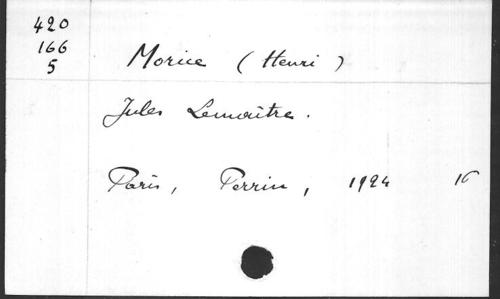 420
166
5
Morice (Henri)
Jules Lemaître.
Paris, Perrin, 1924 16